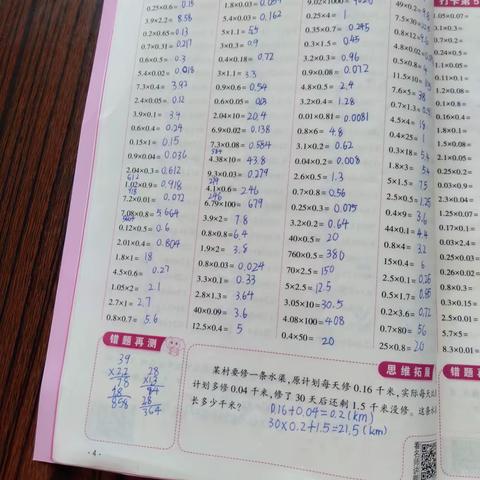 0.25×0.6= 0.15
3.9×2.2= 8.58
0.2×0.65= 0.13
0.7×0.31= 0.217
0.6×0.5= 0.3
5.4×0.02=
7.3×0.4=
2.4×0.05= 0.12
3.9×0.1=
0.6×0.4= 0.24
0.15×1= 0.15
0.9×0.04= 0.036
2.04×0.3= 0.612
612
1.02×0.9= 0.918
918
7.2×0.01= 0.072
7.08×0.8= 5.664
5664
0.12×0.5= 0.6
2.01×0.4= 0.804
1.8×1= 18
4.5×0.6= 0.27
1.05×2= 2.1
2.7×1= 2.7
0.8×0.7= 5.6
1.8×0.03=
5.4×0.03= 0.162
5×1.1= 5.5
3×0.3= 0.9
0.4×0.18= 0.72
3×1.1= 3.3
0.9×0.6= 0.54
0.6×0.05=
2.04×10= 20.4
6.9×0.02= 0.138
7.3×0.08= 0.584
584
4.38×10= 43.8
9.3×0.03= 0.279
279
4.1×0.6= 2.46
246
6.79×100= 679
3.9×2= 7.8
0.8×0.8= 6.4
1.9×2= 3.8
0.8×0.03= 0.024
3.3×0.1= 0.33
2.8×1.3= 3.64
40×0.09= 3.6
12.5×0.4= 5
9.02×1000=
0.25×4= 1
0.35×0.7= 0.245
0.3×1.5= 0.45
3.2×0.3= 0.96
0.9×0.08= 0.072
4.8×0.5= 2.4
3.2×0.4= 1.28
0.01×0.81= 0.0081
0.8×6= 4.8
3.1×0.2= 0.62
0.04×0.2= 0.008
2.6×0.5= 1.3
0.7×0.8= 0.56
0.25×0.3= 0.075
3.2×0.2= 0.64
40×0.5= 20
760×0.5= 380
70×2.5= 150
5×2.5= 12.5
3.05×10= 30.5
4.08×100= 408
0.4×50= 20
49×0.2=
7.5×30=
0.8×12=
0.5×0.8=
11.5×10=
7.6×5= 38
0.7×1.3=
4.5×4= 18
0.4×25= 1
0.3×18= 5.4
1.8×3= 5.4
5×1.5= 7.5
2.5×0.5= 1.25
0.4×9= 3.6
44×0.1= 4.4
0.8×4= 32
15×0.4= 6
2.5×0.1= 0.25
0.5×1.7= 0.85
0.2×3.6= 0.72
0.7×80= 56
25×0.8= 20
打卡第5
1.05×0.07=
3.1×0.03=
0.7×0.2=
0.24×0.5=
1.1×0.05=
3.1×0.3=
1.2×0.08=
0.1×0.8=
0.16×0.4=
1.8×0.1=
1.5×0.08=
2.1×0.05=
0.25×0.2=
0.03×0.9=
2.3×0.04=
1.25×0.07=
0.17×0.1=
0.03×2.4=
0.25×0.03=
0.8×0.3=
0.3×0.15=
2.5×0.01=
5.7×5=
8.3×0.01=
错题再测
39
×22
78
78
858
28
×13
84
28
364
思维拓展
某村要修一条水渠,原计划每天修 0.16 千米,实际每天比
计划多修 0.04 千米,修了 30 天后还剩 1.5 千米没修。这条水
长多少千米?
0.16+0.04=0.2(km)
30×0.2+1.5=21.5(km)
错题再
看名师讲
·4·